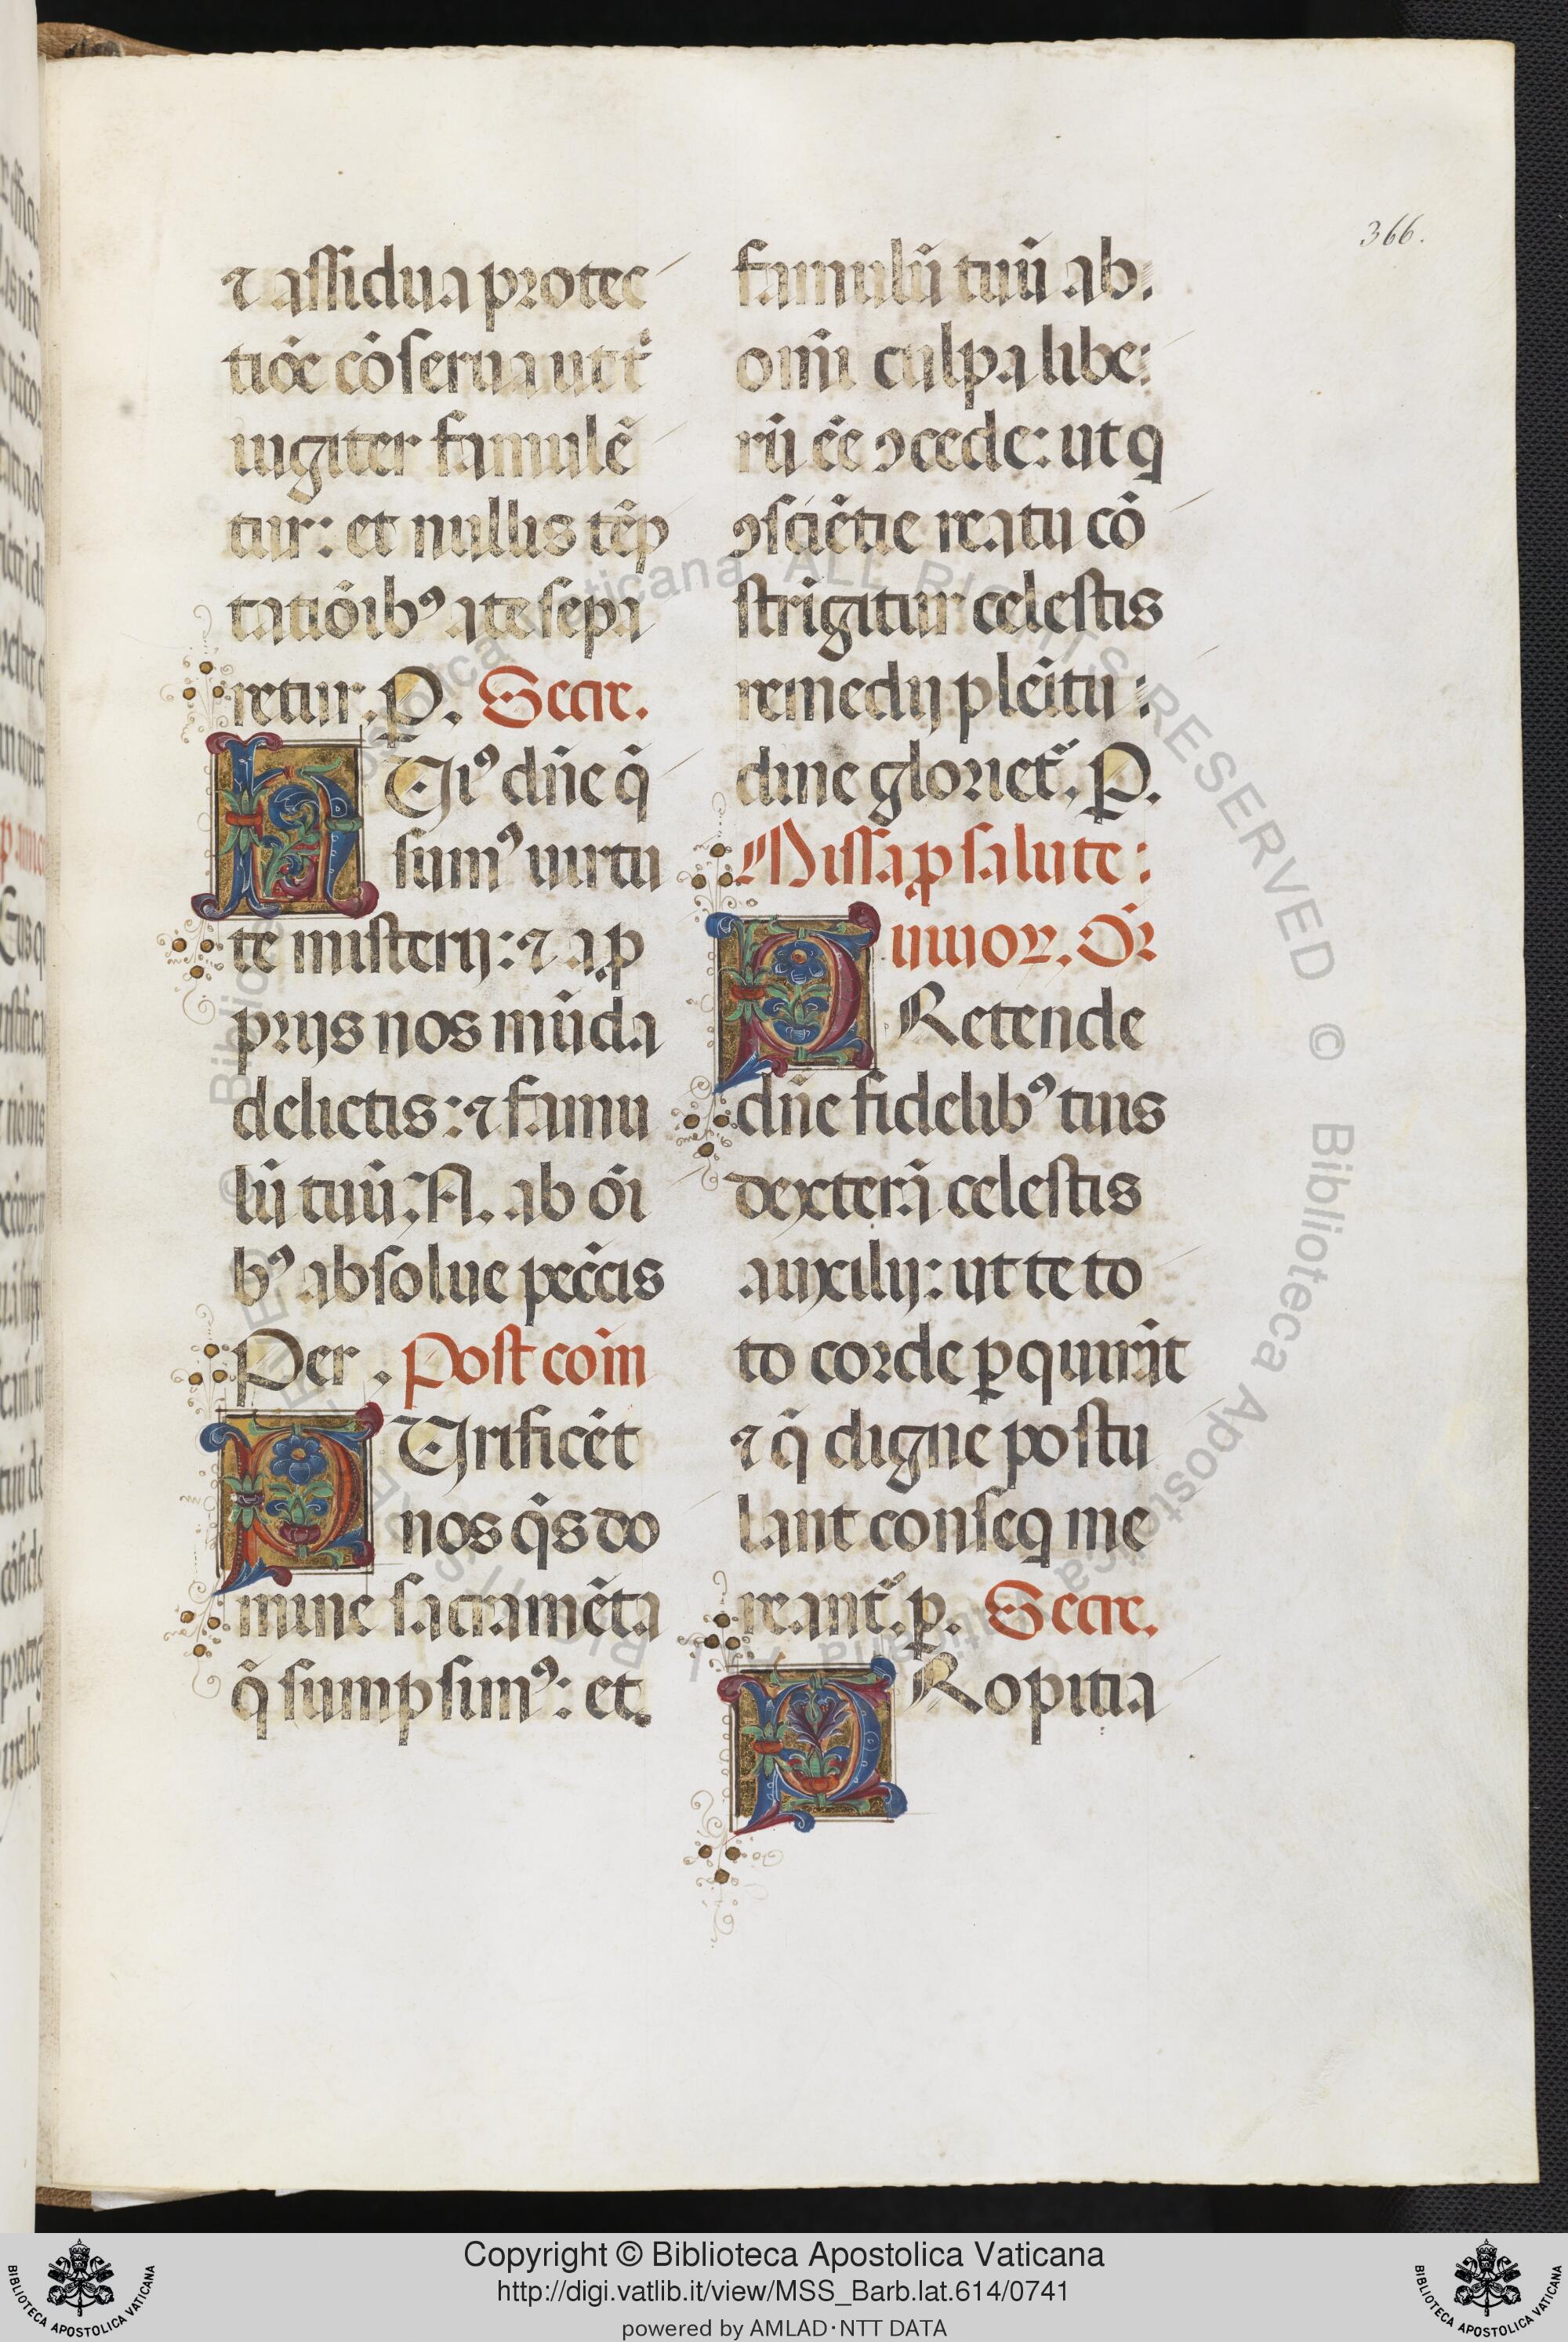 366.
⁊ assidua protec
tiōe cōserua ut t̄
iugiter famulē
tur: et nullis tēp
tatiōibꝰ a te sepa
retur. P. Secre.
HUiꝰ dn̄e q̄
sumꝰ uirtu
te misterij: ⁊ a ꝓ
prijs nos mūda
delictis: ⁊ famu
lū tuū. N. ab oī
bꝰ absolue pecc̄is
Per. Post com̄
PUrificēt
nos q̄s do
mine sacramēta
q̄ sumpsimꝰ: et
famulū tuū ab.
om̄i culpa libe:
rū ēe ꝯcede: ut q
ꝯsciētie reatu cō
strīgitur celestis
remedij pleītu:
dine gloriet᷑. P.
Missa ꝓ salute:
uiuoꝝ. Or̄
PRetende
dn̄e fidelibꝰ tuis
dexterā celestis
auxilij: ut te to
to corde ꝑquirāt
⁊ q̄ digne postu
lant conseq me
reant᷑. p. Secre.
PRopitia
Copyright © Biblioteca Apostolica Vaticana
http://digi.vatlib.it/view/MSS_Barb.lat.614/0741
powered by AMLAD·NTT DATA
BIBLIOTECA APOSTOLICA VATICANA
BIBLIOTECA APOSTOLICA VATICANA